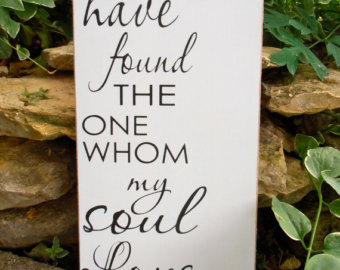 have
found
THE
ONE
WHOM
my
soul